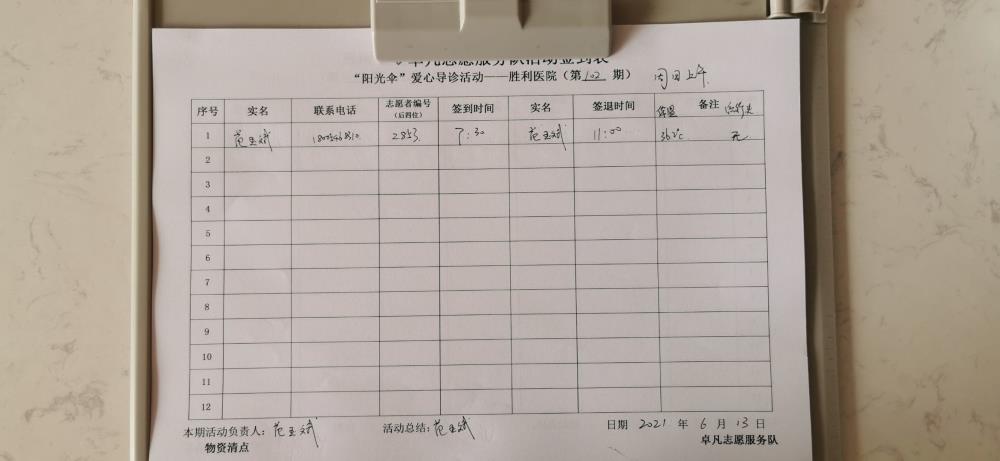 卓凡志愿服务队活动签到表
“阳光伞”爱心导诊活动——胜利医院（第102期） 周日上午
序号 实名 联系电话 志愿者编号（后四位） 签到时间 实名 签退时间 体温 备注
1 范玉斌 2853 7:30 范玉斌 11:00 36℃ 无
2
3
4
5
6
7
8
9
10
11
12
本期活动负责人：范玉斌 活动总结：范玉斌 日期 2021 年 6 月 13 日
物资清点 卓凡志愿服务队